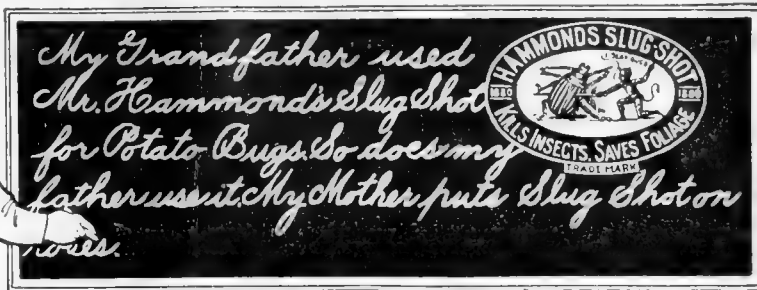 My Grandfather used
Mr. Hammond's Slug Shot
for Potato Bugs. So does my
father use it My Mother puts Slug Shot on
roses.
HAMMOND'S SLUG-SHOT
1880 1896
KILLS INSECTS, SAVES FOLIAGE
TRADE MARK